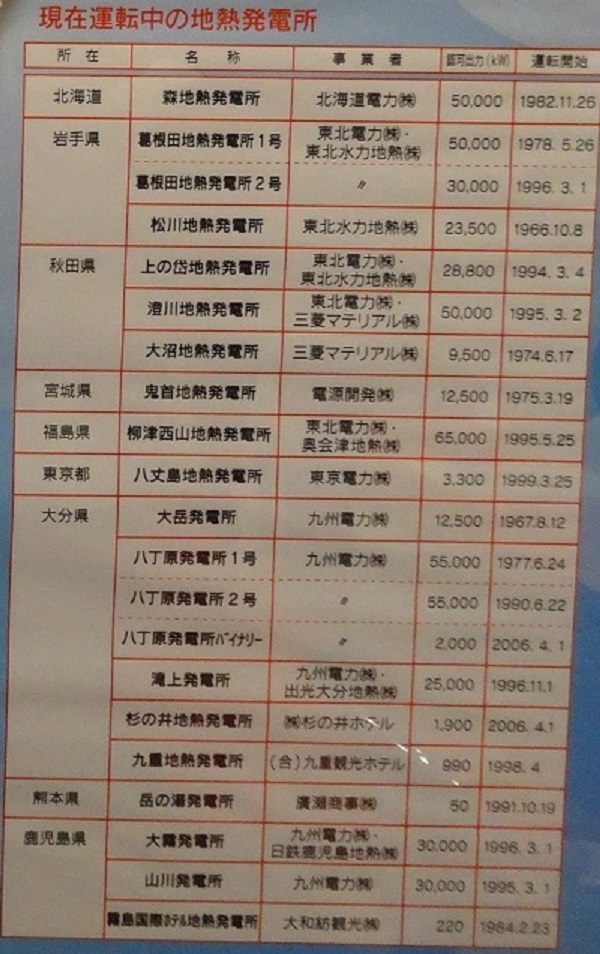 現在運転中の地熱発電所
所在 名称 事業者 認可出力(kW) 運転開始
北海道 森地熱発電所 北海道電力㈱ 50,000 1982.11.26
岩手県 葛根田地熱発電所1号 東北電力㈱・東北水力地熱㈱ 50,000 1978. 5.26
葛根田地熱発電所2号 〃 30,000 1996. 3. 1
松川地熱発電所 東北水力地熱㈱ 23,500 1966.10.8
秋田県 上の岱地熱発電所 東北電力㈱・東北水力地熱㈱ 28,800 1994. 3. 4
澄川地熱発電所 東北電力㈱・三菱マテリアル㈱ 50,000 1995. 3. 2
大沼地熱発電所 三菱マテリアル㈱ 9,500 1974.6.17
宮城県 鬼首地熱発電所 電源開発㈱ 12,500 1975.3.19
福島県 柳津西山地熱発電所 東北電力㈱・奥会津地熱㈱ 65,000 1995.5.25
東京都 八丈島地熱発電所 東京電力㈱ 3,300 1999.3.25
大分県 大岳発電所 九州電力㈱ 12,500 1967.8.12
八丁原発電所1号 九州電力㈱ 55,000 1977.6.24
八丁原発電所2号 〃 55,000 1990.6.22
八丁原発電所バイナリー 〃 2,000 2006. 4. 1
滝上発電所 九州電力㈱・出光大分地熱㈱ 25,000 1996.11.1
杉の井地熱発電所 ㈱杉の井ホテル 1,900 2006. 4.1
九重地熱発電所 (合)九重観光ホテル 990 1998. 4
熊本県 岳の湯発電所 廣瀬商事㈱ 50 1991.10.19
鹿児島県 大霧発電所 九州電力㈱・日鉄鹿児島地熱㈱ 30,000 1996. 3. 1
山川発電所 九州電力㈱ 30,000 1995. 3. 1
霧島国際ホテル地熱発電所 大和紡観光㈱ 220 1984.2.23